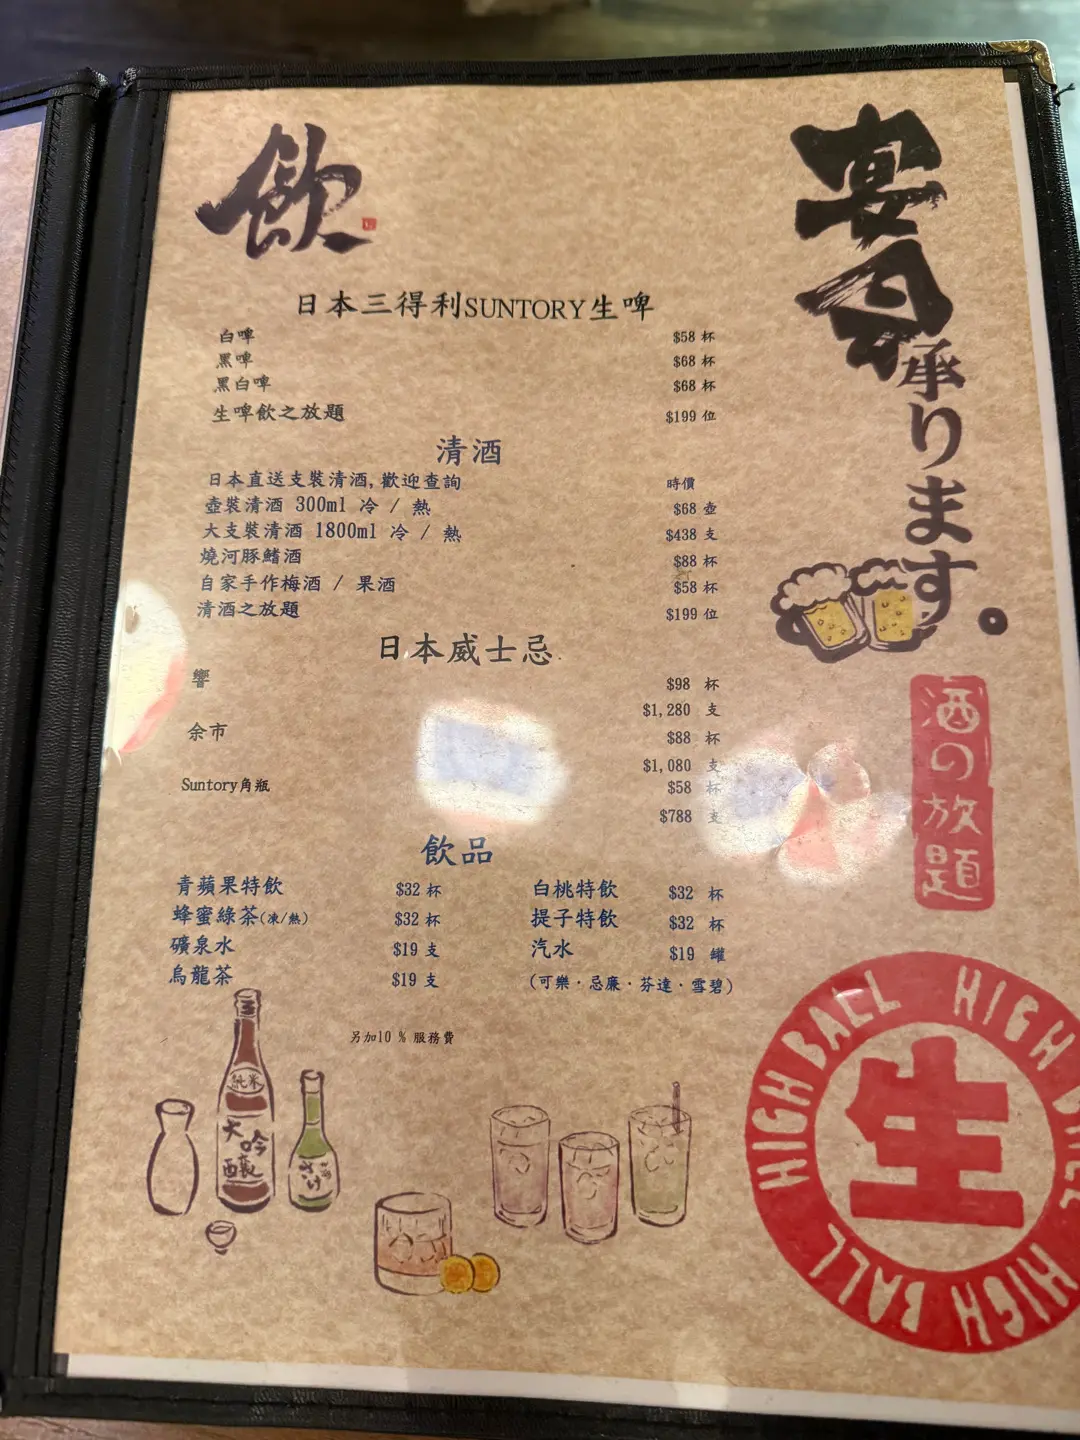 飲
日本三得利SUNTORY生啤
白啤 $58 杯
黑啤 $68 杯
黑白啤 $68 杯
生啤飲之放題 $199 位
清酒
日本直送支裝清酒,歡迎查詢 時價
壺裝清酒 300ml 冷 / 熱 $68 壺
大支裝清酒 1800ml 冷 / 熱 $438 支
燒河豚鰭酒 $88 杯
自家手作梅酒 / 果酒 $58 杯
清酒之放題 $199 位
日本威士忌
響 $98 杯
$1,280 支
余市 $88 杯
$1,080 支
Suntory角瓶 $58 杯
$788 支
飲品
青蘋果特飲 $32 杯 白桃特飲 $32 杯
蜂蜜綠茶(凍/熱) $32 杯 提子特飲 $32 杯
礦泉水 $19 支 汽水 $19 罐
烏龍茶 $19 支 (可樂·忌廉·芬達·雪碧)
另加10 % 服務費
宴会承ります。
酒の放題
純米
大吟醸
さけ
HIGH BALL HIGH BALL HIGH BALL
生